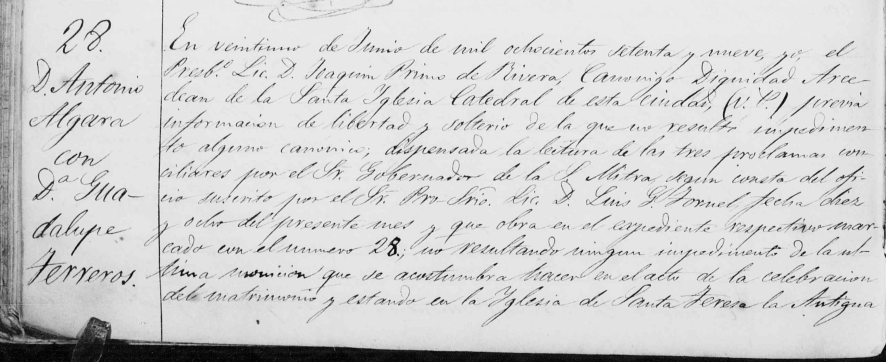 28.
D. Antonio
Algara
con
D.ª Gua-
dalupe
Terreros.
En veintiuno de Junio de mil ochocientos setenta y nueve, yo, el
Presb.º Lic. D. Joaquin Primo de Rivera, Canonigo Dignidad Arce-
dean de la Santa Yglesia Catedral de esta Ciudad, (V. P.) previa
informacion de libertad y solterio de la que no resultó impedimen-
to alguno canonico; dispensada la leitura de las tres proclamas con-
ciliares por el Sr. Gobernador de la S. Mitra segun consta del ofi-
cio suscrito por el Sr. Pro Srio. Lic. D. Luis G. Tornel fecha diez
y ocho del presente mes y que obra en el expediente respectivo mar-
cado con el numero 28, no resultando ningun impedimento de la ul-
tima monicion que se acostumbra hacer en el acto de la celebracion
del matrimonio y estando en la Yglesia de Santa Teresa la Antigua